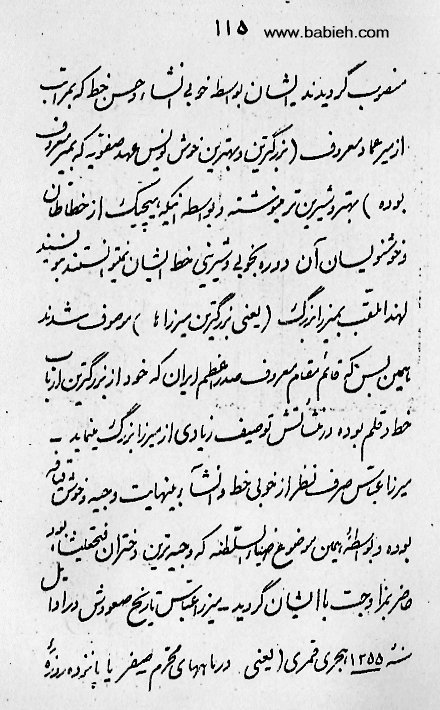 ۱۱۵
www.babieh.com
منصوب گردیدند ایشان بواسطه خوبی انشاء و حسن خط که بمراتب
از میر عماد معروف (بزرگترین و بهترین خوش نویس عهد صفویه که بمیر معروف
بوده) بهتر و شیرین تر مینوشته و بواسطه اینکه هیچیک از خطاطان
و خوشنویسان آن دوره بخوبی و شیرینی خط ایشان نمیتوانستند بنویسند
لهذا ملقب بمیرزا بزرگ (یعنی بزرگترین میرزا ها) موصوف شدند
همین بس که قائم مقام معروف صدر اعظم ایران که خود از بزرگترین ارباب
خط و قلم بوده در منشآتش توصیف زیادی از میرزا بزرگ مینماید -
میرزا عباس صرف نظر از خوبی خط و انشآء بینهایت وجیه و خوش قیافه
بوده و بواسطهٔ همین موضوع ضیاء السلطنه که وجیه ترین دختران فتحعلیشاه بود
حاضر بمزاوجت با ایشان گردید - میرزا عباس تاریخ صعودش در اوایل
سنهٔ ۱۲۵۵ هجری قمری (یعنی در ماههای محرم صفر یا پانزده روزهٔ